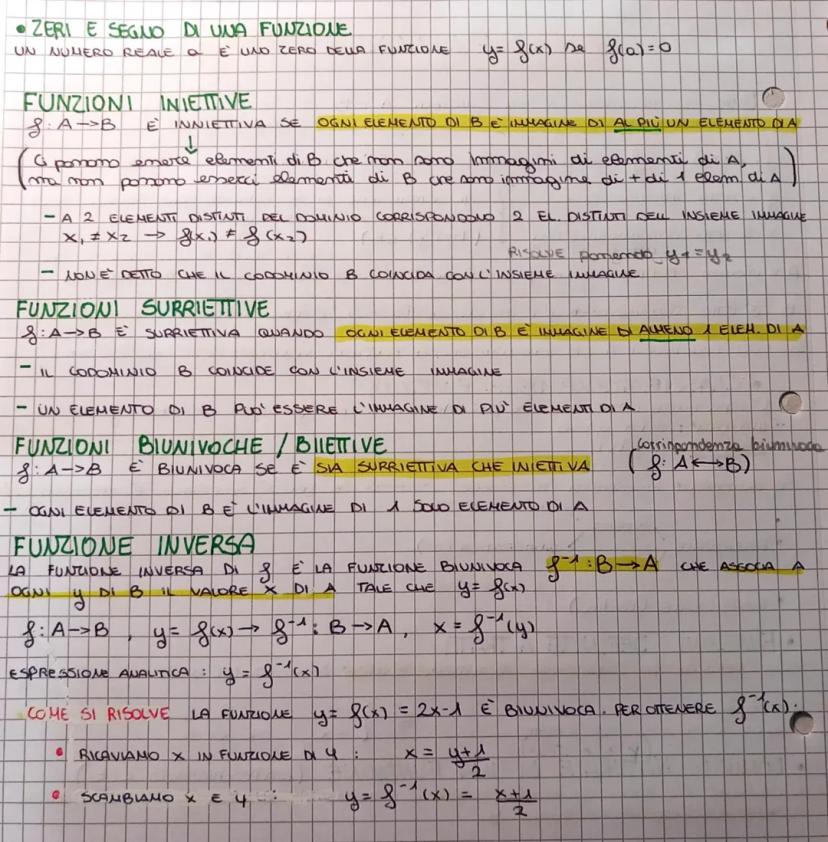 • ZERI E SEGNO DI UNA FUNZIONE
UN NUMERO REALE a È UNO ZERO DELLA FUNZIONE y= f(x) se f(a)=0
FUNZIONI INIETTIVE
f: A→B È INNIETTIVA SE OGNI ELEMENTO DI B È IMMAGINE DI AL PIÙ UN ELEMENTO DI A
↓
(Ci possono esserce elementi di B che non sono immagini di elementi di A,
ma non possono esserci elementi di B che sono immagine di + di 1 elem. di A)
– A 2 ELEMENTI DISTINTI DEL DOMINIO CORRISPONDONO 2 EL. DISTINTI DELL INSIEME IMMAGINE
x₁ ≠ x₂ → f(x₁) ≠ f(x₂)
RISOLVE ponendo y₁=y₂
– NON È DETTO CHE IL CODOMINIO B COINCIDA CON L'INSIEME IMMAGINE
FUNZIONI SURRIETTIVE
f: A→B È SURRIETTIVA QUANDO OGNI ELEMENTO DI B È IMMAGINE DI ALMENO 1 ELEM. DI A
– IL CODOMINIO B COINCIDE CON L'INSIEME IMMAGINE
– UN ELEMENTO DI B PUO' ESSERE L'IMMAGINE DI PIU' ELEMENTI DI A
FUNZIONI BIUNIVOCHE / BIIETTIVE
Corrispondenza biunivoca
f: A→B È BIUNIVOCA SE È SIA SURRIETTIVA CHE INIETTIVA (f: A↔B)
– OGNI ELEMENTO DI B È L'IMMAGINE DI 1 SOLO ELEMENTO DI A
FUNZIONE INVERSA
LA FUNZIONE INVERSA DI f È LA FUNZIONE BIUNIVOCA f⁻¹: B→A CHE ASSOCIA A
OGNI y DI B IL VALORE X DI A TALE CHE y= f(x)
f: A→B, y= f(x) → f⁻¹: B→A, x = f⁻¹(y)
ESPRESSIONE ANALITICA: y = f⁻¹(x)
COME SI RISOLVE LA FUNZIONE y= f(x) = 2x-1 È BIUNIVOCA. PER OTTENERE f⁻¹(x):
• RICAVIAMO X IN FUNZIONE DI Y : x = y+1/2
• SCAMBIAMO X E Y : y= f⁻¹(x) = x+1/2